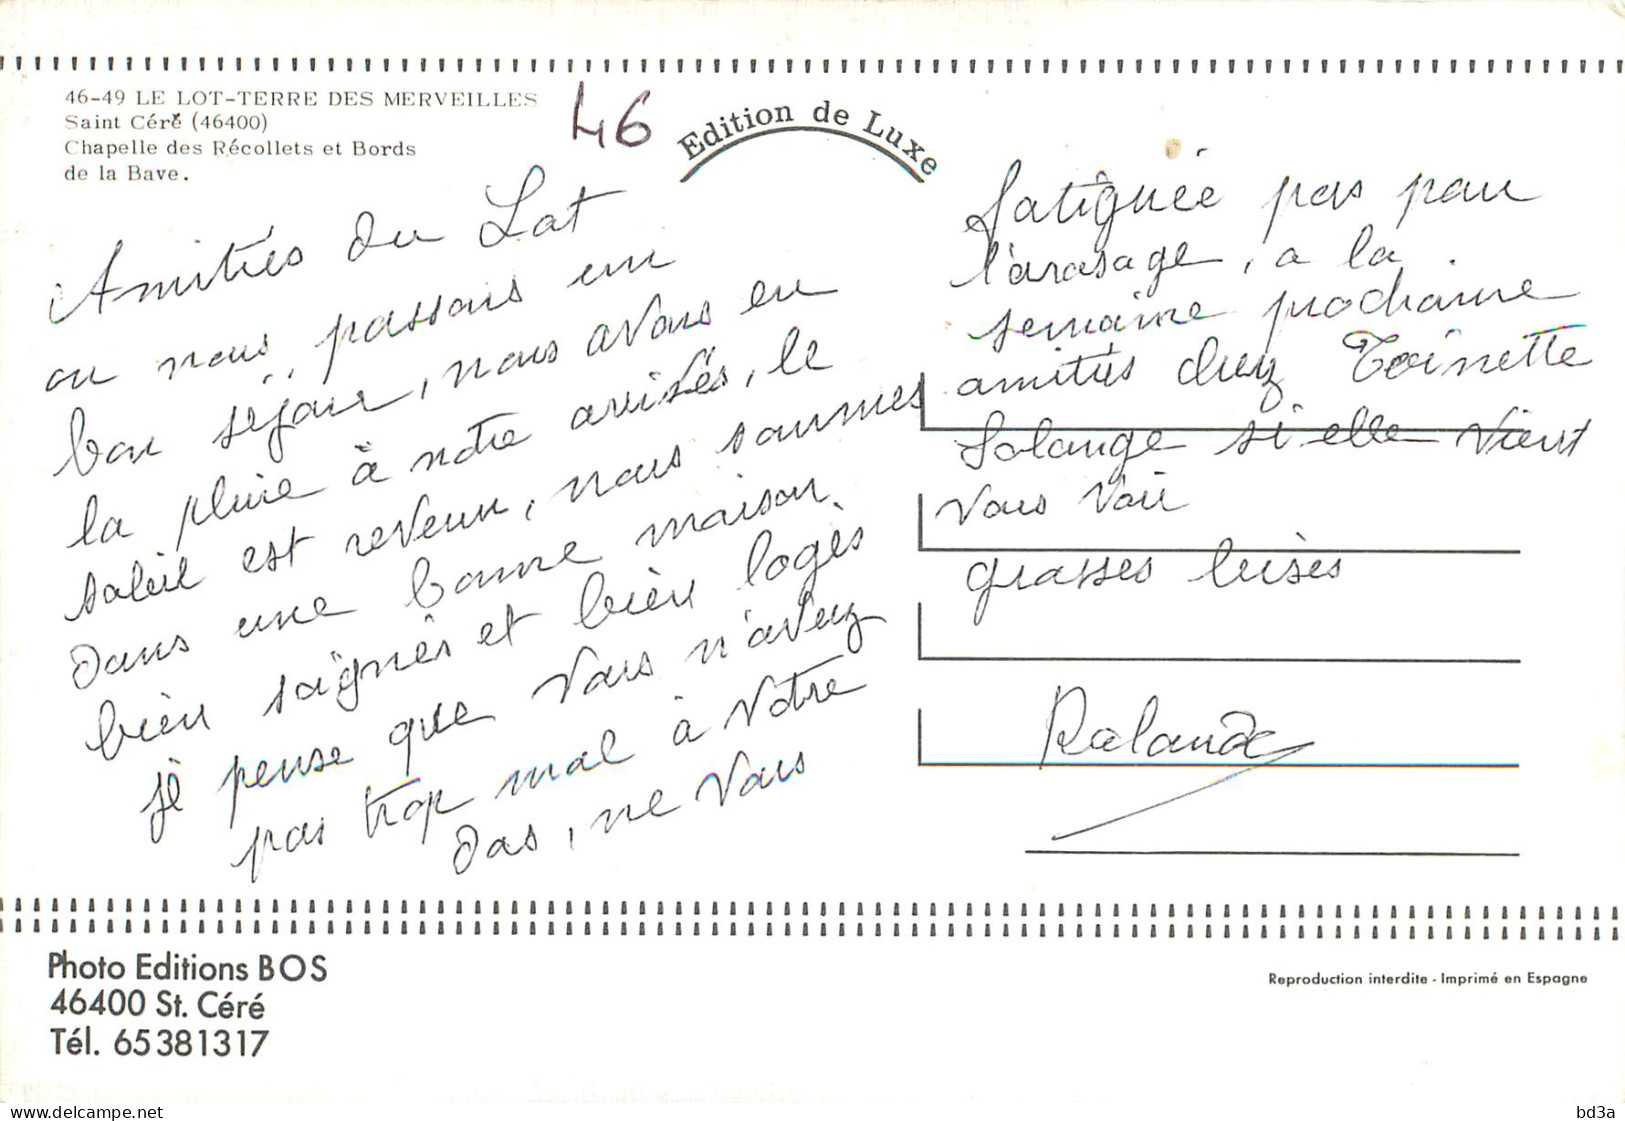 46-49 LE LOT-TERRE DES MERVEILLES
Saint Céré (46400)
Chapelle des Récollets et Bords
de la Bave.
46
Edition de Luxe
Amitiés du Lot
ou nous passons un
bon séjour, nous avons eu
la pluie à notre arivéés, le
soleil est revenu, nous sommes
dans une bonne maison
bien soignès et bien logès
je pense que vous n'avez
pas trop mal à votre
das, ne vous
fatiguée pas pour
l'arosage, a la
semaine prochaine
amitiés chez Toinette
Solange si elle vient
vous voir
grosses bises
Rolande
Photo Editions BOS
46400 St. Céré
Tél. 65381317
Reproduction interdite - Imprimé en Espagne
delcampe.net
bd3a